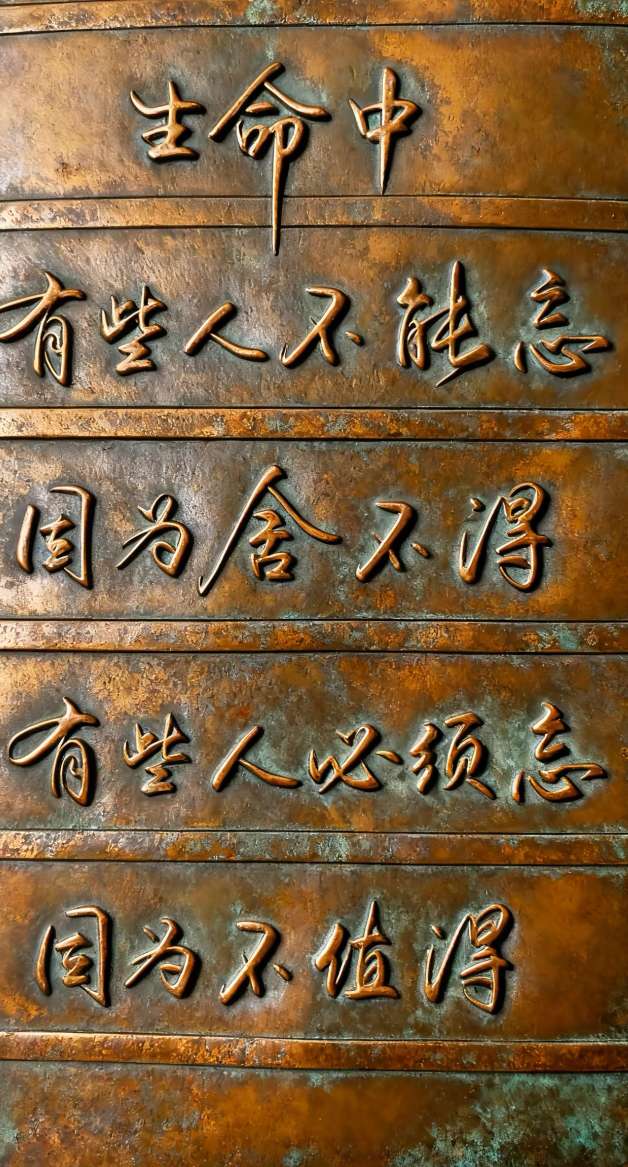 生命中
有些人不能忘
因为舍不得
有些人必须忘
因为不值得